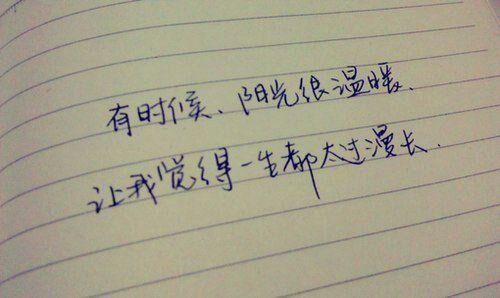 有时候、阳光很温暖.
让我觉得一生都太过漫长.